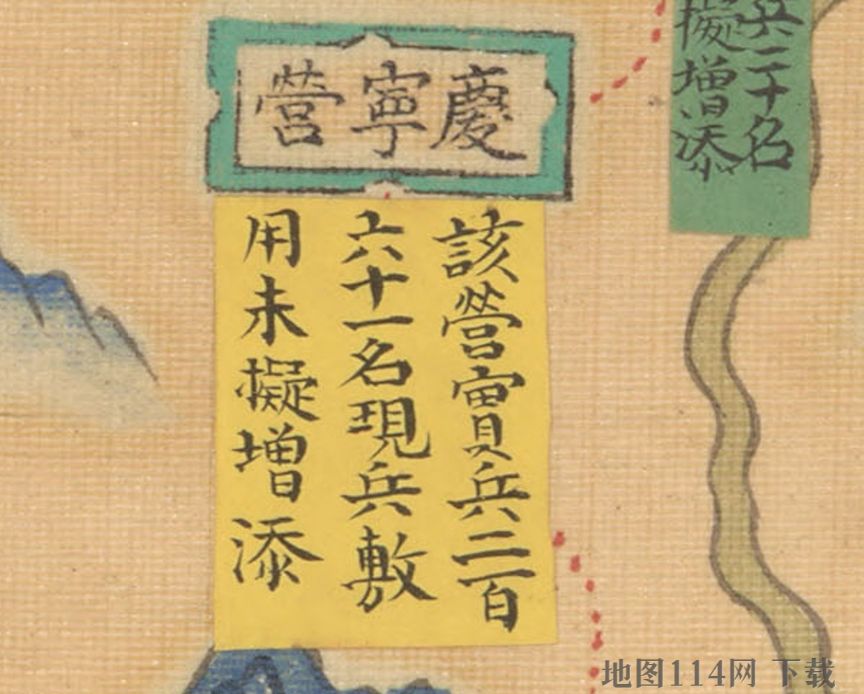 慶寧營
該營實兵二百
六十一名現兵敷
用未擬增添
兵二十名
擬增添
地图114网 下载